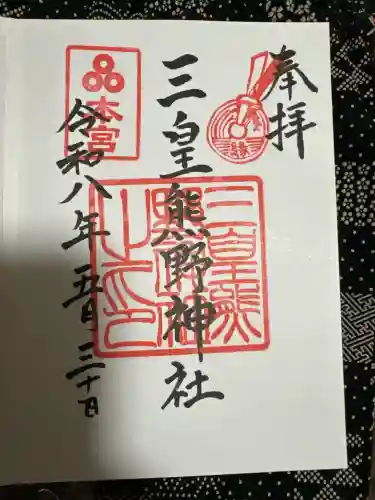 奉拝
縁
三皇熊野神社
三皇熊
野神社
之印
本宮
令和八年五月三十日